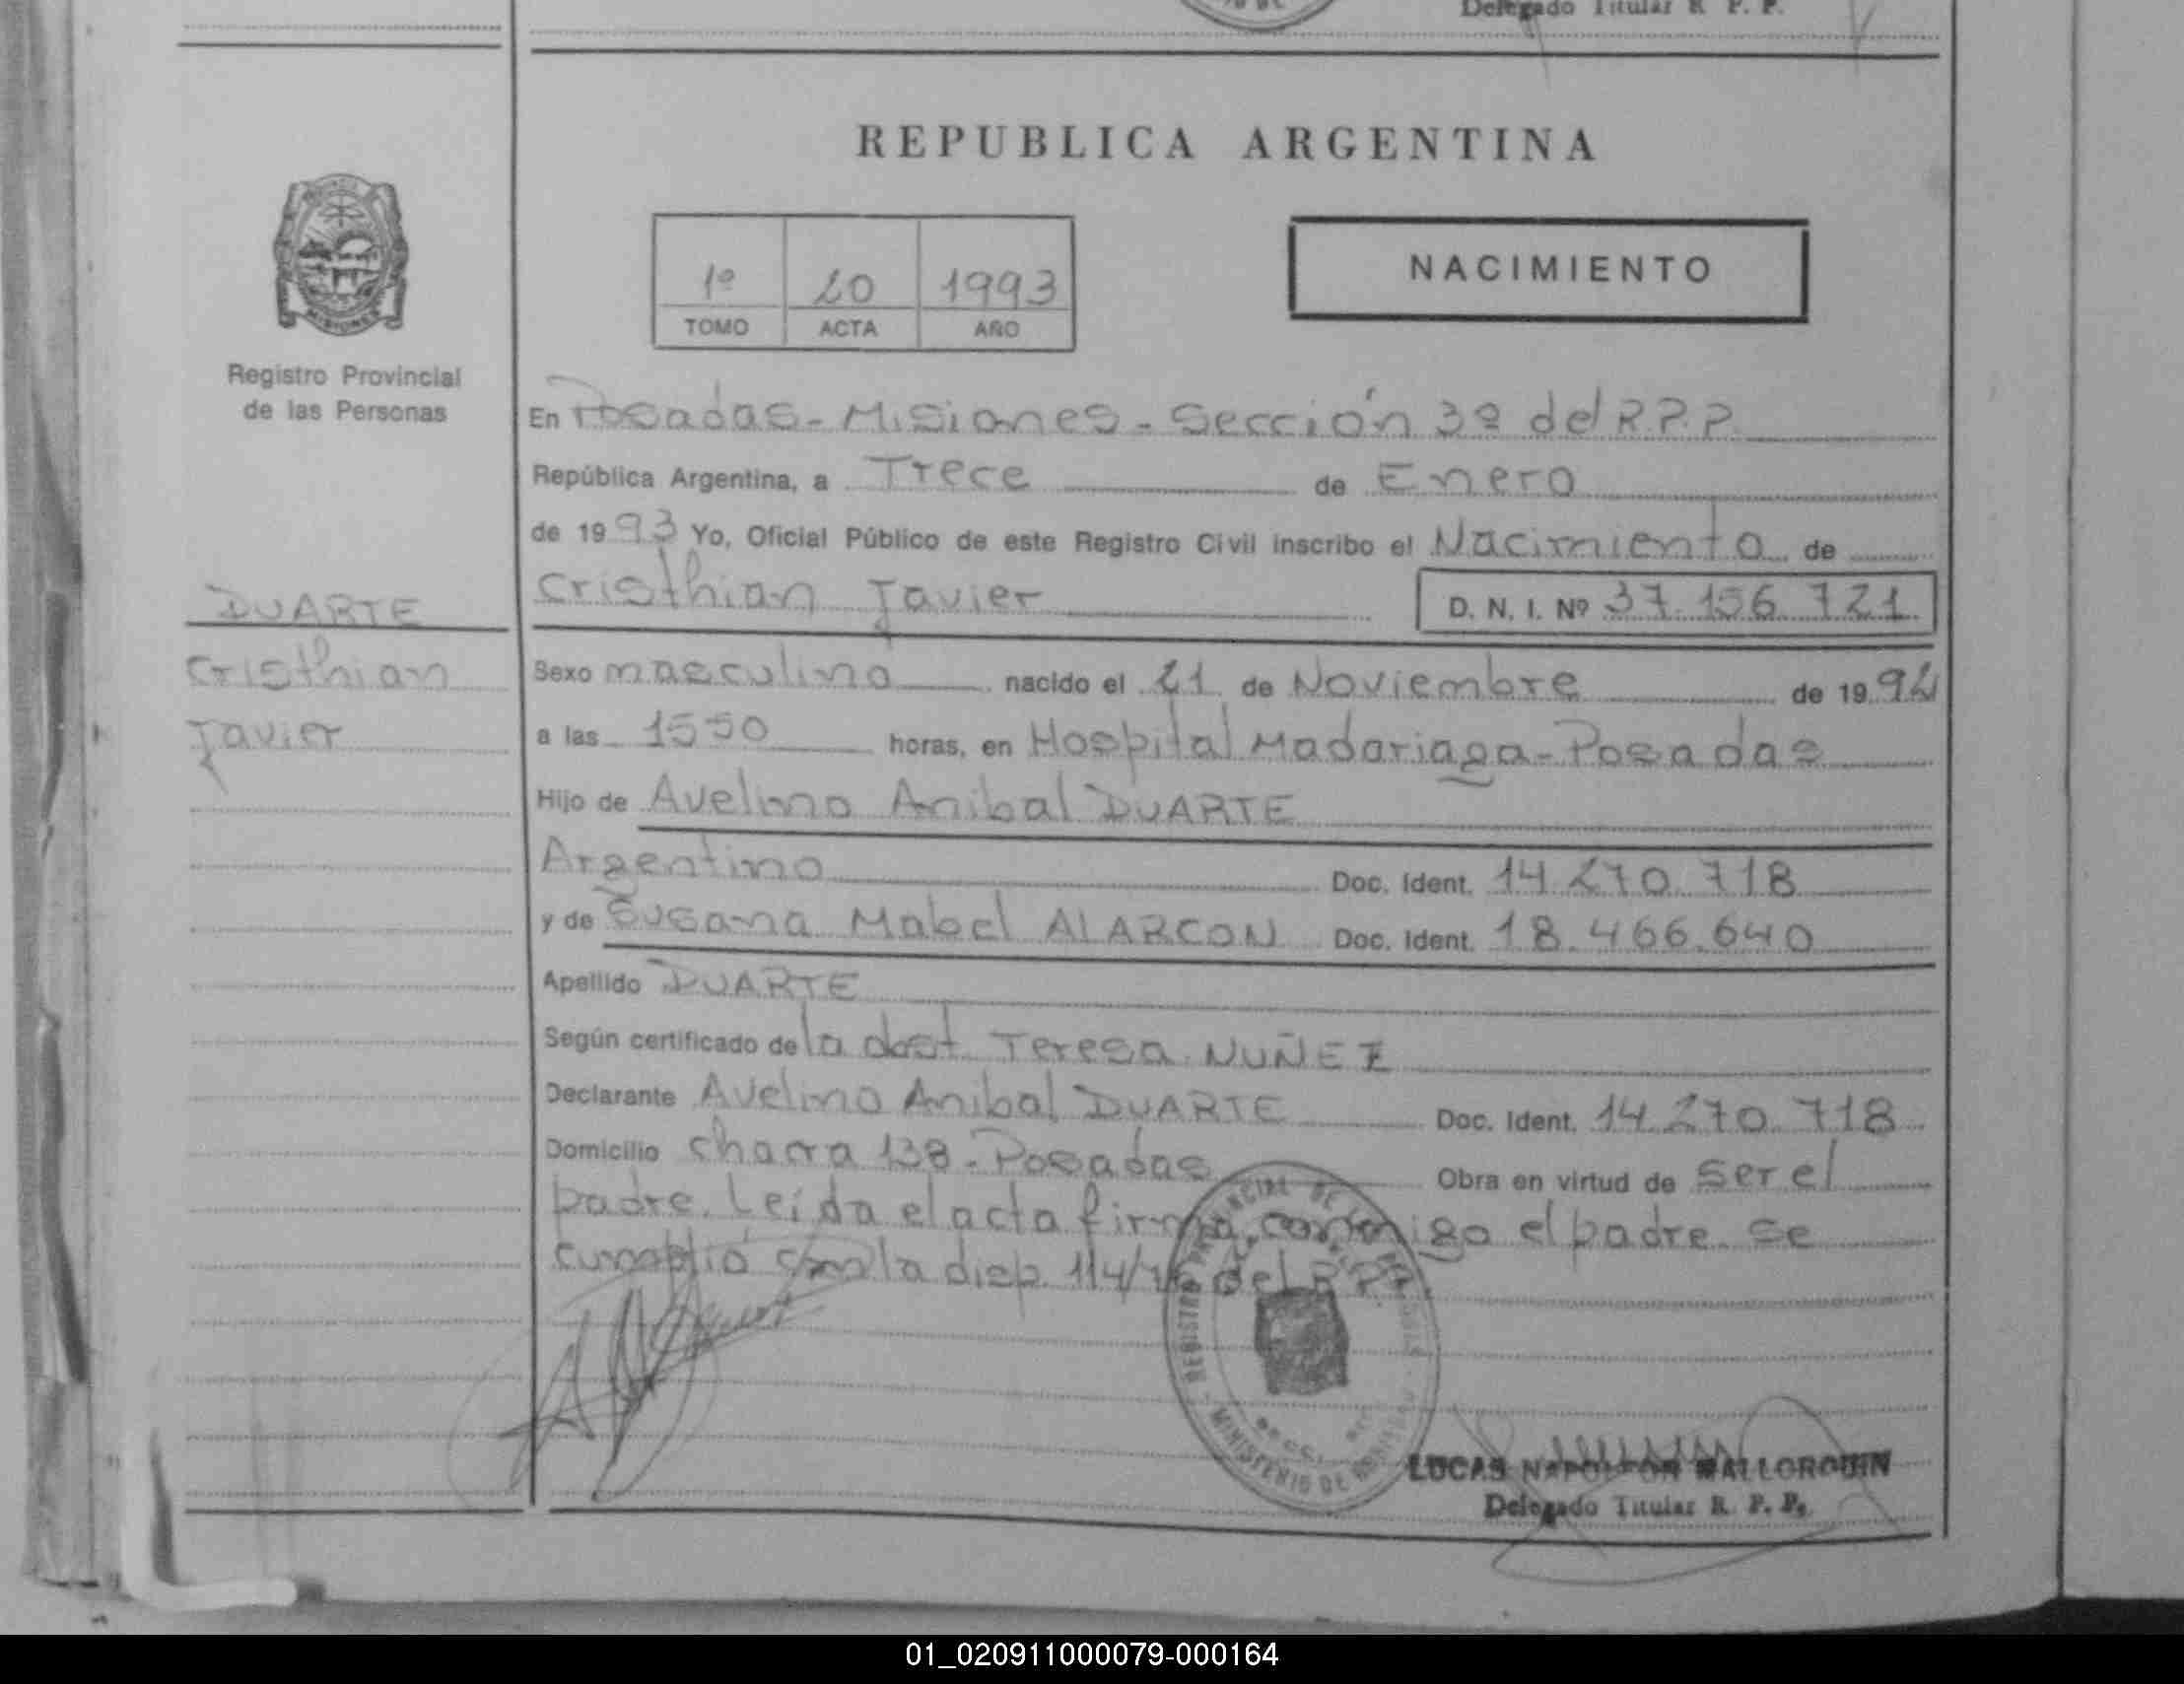 Delegado Titular R. P. P.
REPUBLICA ARGENTINA
1º 20 1993
TOMO ACTA AÑO
NACIMIENTO
MISIONES
Registro Provincial
de las Personas
DUARTE
Cristhian
Javier
En Posadas - Misiones - Sección 3º del R.P.P.
República Argentina, a Trece de Enero
de 1993 Yo, Oficial Público de este Registro Civil inscribo el Nacimiento de
Cristhian Javier D. N. I. Nº 37.156.721
Sexo masculino nacido el 21 de Noviembre de 1992
a las 1550 horas, en Hospital Madariaga - Posadas
Hijo de Avelino Anibal DUARTE
Argentino Doc. Ident. 14.270.718
y de Susana Mabel ALARCON Doc. Ident. 18.466.640
Apellido DUARTE
Según certificado de la obst. Teresa NUÑEZ
Declarante Avelino Anibal DUARTE Doc. Ident. 14.270.718
Domicilio chacra 138 - Posadas Obra en virtud de ser el
padre. Leída el acta firma conmigo el padre se
cumplió con la disp. 114/ del R.P.P.
REGISTRO PROVINCIAL DE LAS PERSONAS
MINISTERIO DE GOBIERNO
LUCAS NAPOLEON MALLORQUIN
Delegado Titular R. P. P.
01_020911000079-000164